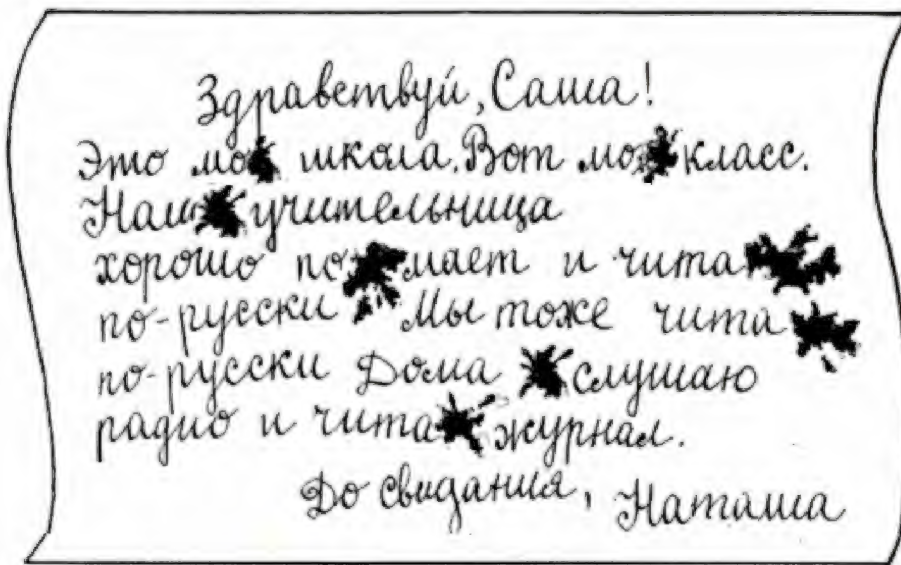 Здравствуй, Саша!
Это мо школа. Вот мо класс.
Наш учительница
хорошо по мает и чита
по-русски Мы тоже чита
по-русски Дома слушаю
радио и чита журнал.
До свидания, Наташа